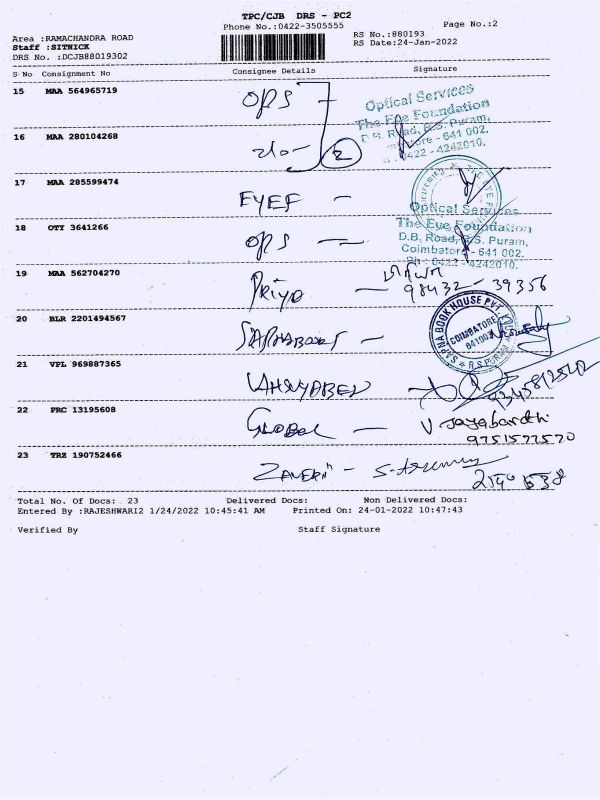 TPC/CJB DRS - PC2
Phone No.:0422-3505555
Page No.:2
Area :RAMACHANDRA ROAD
RS No.:880193
Staff :SITHICK
RS Date:24-Jan-2022
DRS No. :DCJB88019302
S No Consignment No Consignee Details Signature
15 MAA 564965719 OPS
Optical Services
The Eye Foundation
D.B. Road, R.S. Puram,
641 002.
0422 - 4242010.
16 MAA 280104268 2
17 MAA 285599474 EYEF -
18 OTY 3641266 OPS -
Optical Services
The Eye Foundation
D.B. Road, R.S. Puram,
Coimbatore - 641 002.
Ph : 0422 - 4242010.
19 MAA 562704270 Priya - 98432 - 39356
20 BLR 2201494567
SAPNA BOOK HOUSE PVT.
COIMBATORE
R.S PURAM
21 VPL 969887365
22 PRC 13195608 GLOBAL - V Jayabardhi
9751577570
23 TRZ 190752466 ZAVERI -
Total No. Of Docs: 23 Delivered Docs: Non Delivered Docs:
Entered By :RAJESHWARI2 1/24/2022 10:45:41 AM Printed On: 24-01-2022 10:47:43
Verified By Staff Signature